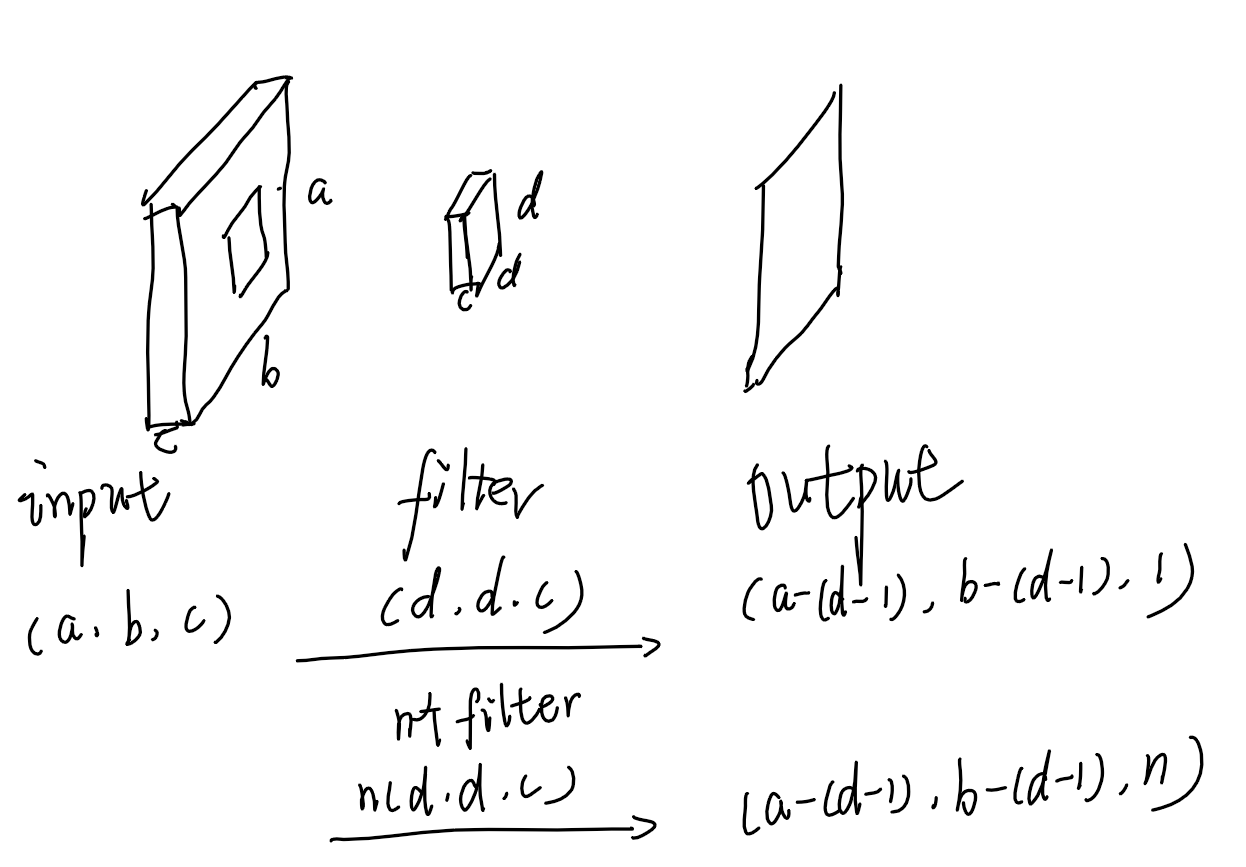 a
b
c
d
d
c
input
filter
output
(a, b, c)
(d, d, c)
(a-(d-1), b-(d-1), 1)
n个 filter
n(d, d, c)
(a-(d-1), b-(d-1), n)